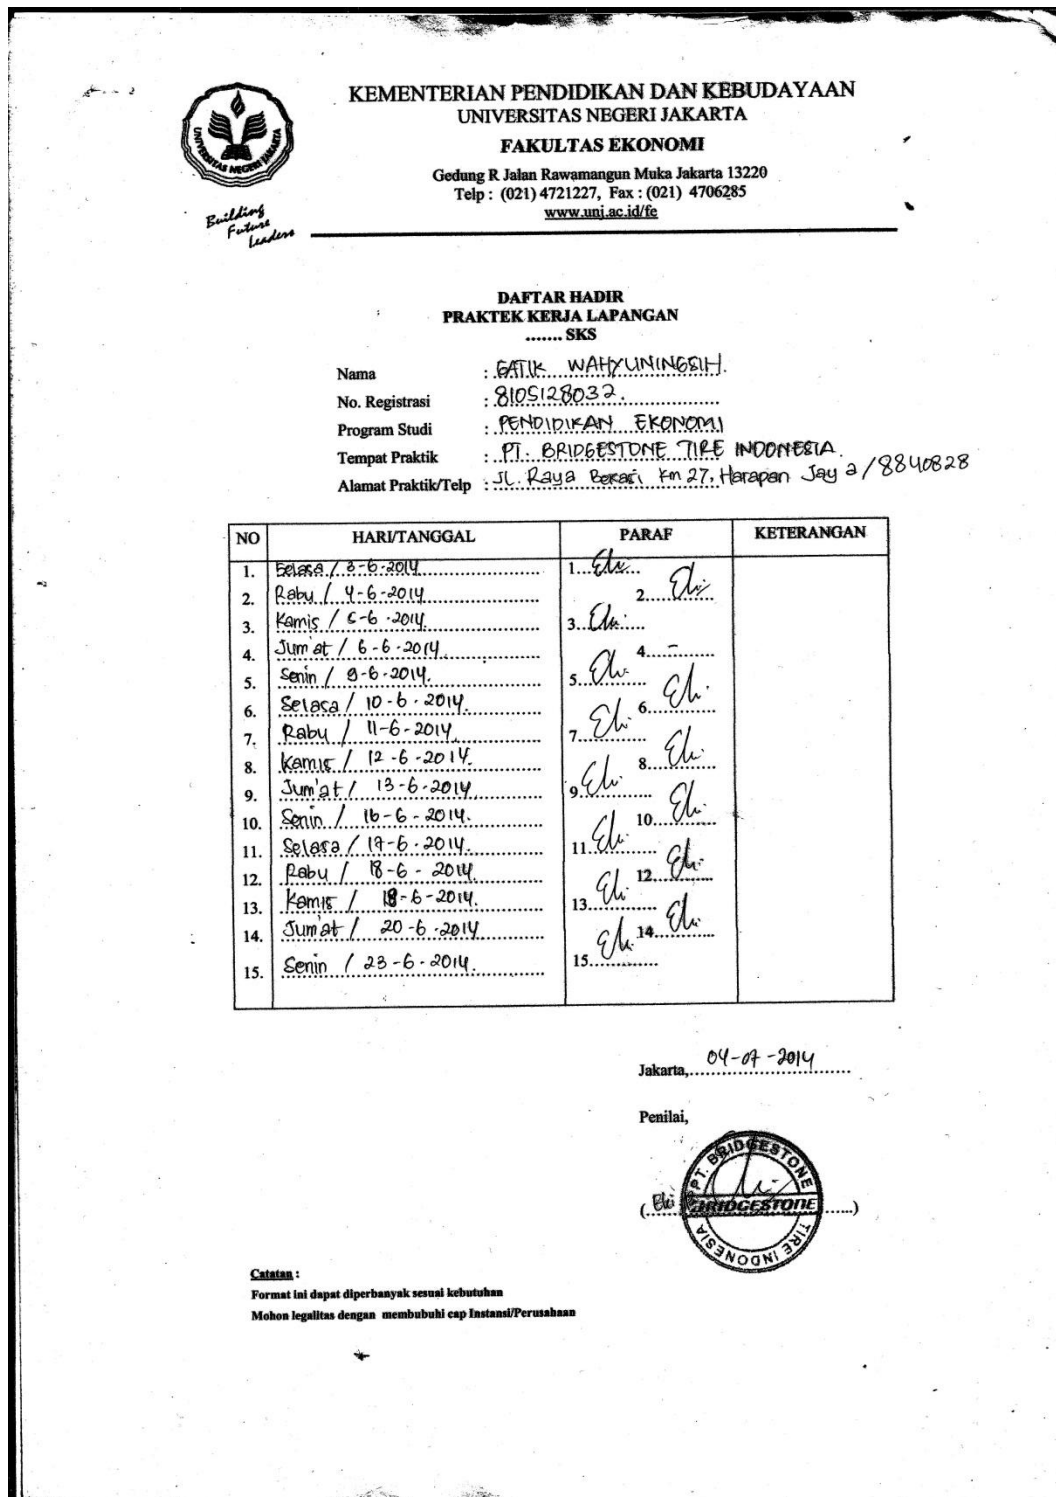 KEMENTERIAN PENDIDIKAN DAN KEBUDAYAAN
UNIVERSITAS NEGERI JAKARTA
FAKULTAS EKONOMI
Gedung R Jalan Rawamangun Muka Jakarta 13220
Telp : (021) 4721227, Fax : (021) 4706285
www.unj.ac.id/fe
UNIVERSITAS NEGERI JAKARTA
Building
Future
Leaders
DAFTAR HADIR
PRAKTEK KERJA LAPANGAN
....... SKS
Nama : GATIK WAHYUNINGSIH.
No. Registrasi : 8105128032.
Program Studi : PENDIDIKAN EKONOMI
Tempat Praktik : PT. BRIDGESTONE TIRE INDONESIA.
Alamat Praktik/Telp : JL. Raya Bekasi Km 27, Harapan Jaya/8840828
NO HARI/TANGGAL PARAF KETERANGAN
1. Selasa / 3-6-2014 1.
2. Rabu / 4-6-2014 2.
3. Kamis / 5-6-2014. 3.
4. Jum'at / 6-6-2014 4. -
5. Senin / 9-6-2014. 5.
6. Selasa / 10-6-2014. 6.
7. Rabu / 11-6-2014 7.
8. Kamis / 12-6-2014. 8.
9. Jum'at / 13-6-2014 9.
10. Senin / 16-6-2014. 10.
11. Selasa / 17-6-2014. 11.
12. Rabu / 18-6-2014 12.
13. Kamis / 19-6-2014. 13.
14. Jum'at / 20-6-2014 14.
15. Senin / 23-6-2014. 15.
Jakarta, 04-07-2014
Penilai,
PT. BRIDGESTONE
BRIDGESTONE
TIRE INDONESIA
Catatan :
Format ini dapat diperbanyak sesuai kebutuhan
Mohon legalitas dengan membubuhi cap Instansi/Perusahaan